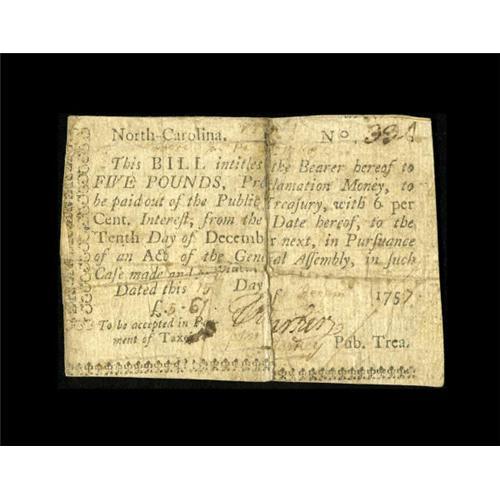 North-Carolina. No. 334
This BILL intitles the Bearer hereof to
FIVE POUNDS, Proclamation Money, to
be paid out of the Public Treasury, with 6 per
Cent. Interest, from the Date hereof, to the
Tenth Day of December next, in Pursuance
of an Act of the General Assembly, in such
Case made and
Dated this Day 1757
£5
To be accepted in Pay-
ment of Taxes Pub. Trea.